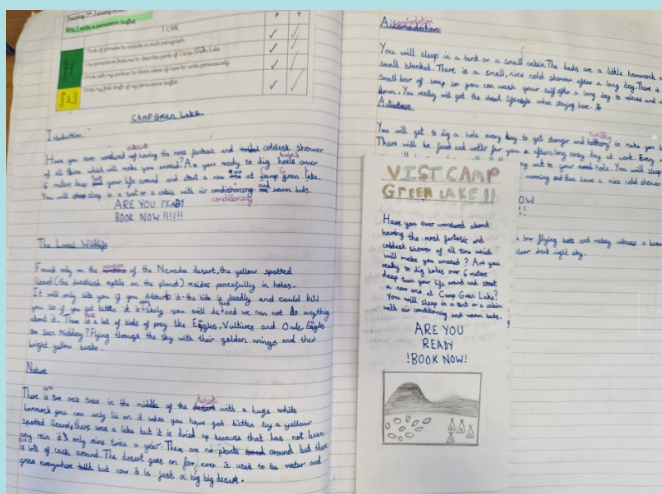 I CAN
Think of phrases to include in each paragraph.
Use persuasive features to describe parts of Camp Green Lake
Work with my partner to share ideas of how to write persuasively
Write my first draft of my persuasive leaflet
CAMP Green Lake
Have you ever wondered about having the most fantastic and coldest shower
of all time which will make you amazed? Are you ready to dig holes over
6 meters deep your life around and start a new one at camp green lake.
You will sleep in a tent or a cabin with air conditioning and warm beds.
ARE YOU READY
BOOK NOW !!!!!
The Local Wildlife
Found only on the of the Nevada desert, the yellow spotted
lizard (the on the planet) resides peacefully in holes.
It will only bite you if you disturb it- the bite is deadly and could kill
you so if you get bitten it is likely you will die and we can not do anything
about it. There is a lot of birds of prey like Eagles, Vultures and Owls,
Flying through the sky with their golden wings and their
bright yellow beaks.
Nature
There is one tree in the middle of the desert with a huge white
hammock you can only lie on it when you have got bitten by a yellow
spotted lizard, there was a lake but it is dried up because that has not been
any rain it's only rains twice a year. There are no plants around but there
is lots of around. The desert goes on for ever it used to be water and
grass everywhere but now it is just a big big desert.
Accomodation:
accommodation
You will sleep in a tent or a small cabin. The beds are a little hammock
small blanket. There is a small, nice cold shower after a long day. There is
small bar of soap so you can wash your self after a long day to relax and
down. You really will get the best lifestyle when staying here.
Activities
You will get to dig a hole every day to get stronger and to make you
There will be food and water for you after a long easy day at work. Every
VIST CAMP
GREEN LAKE!!
Have you ever wondered about
having the most fantasic and
coldest shower of all time which
will make you amazed? Are you
ready to dig holes over 6 meters
deep turn your life around and start
a new one at Camp Green Lake?
You will sleep in a tent or a cabin
with air conditionity and warm beds.
ARE YOU
READY
!BOOK NOW!